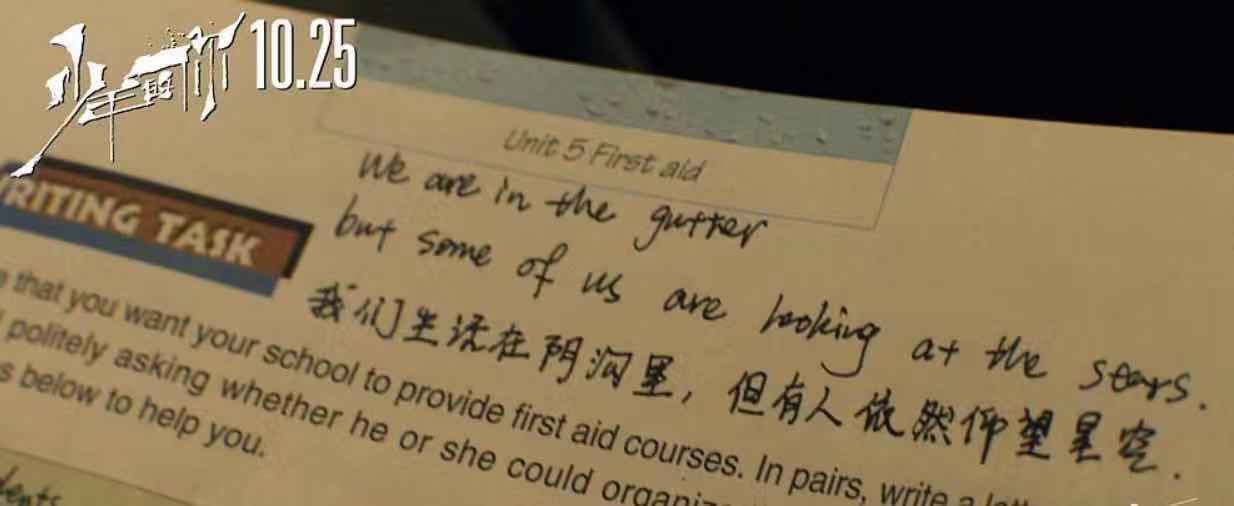 少年的你 10.25
Unit 5 First aid
We are in the gutter
but some of us are looking at the stars.
我们生活在阴沟里，但有人依然仰望星空.
WRITING TASK
that you want your school to provide first aid courses. In pairs, write a
politely asking whether he or she could
below to help you.